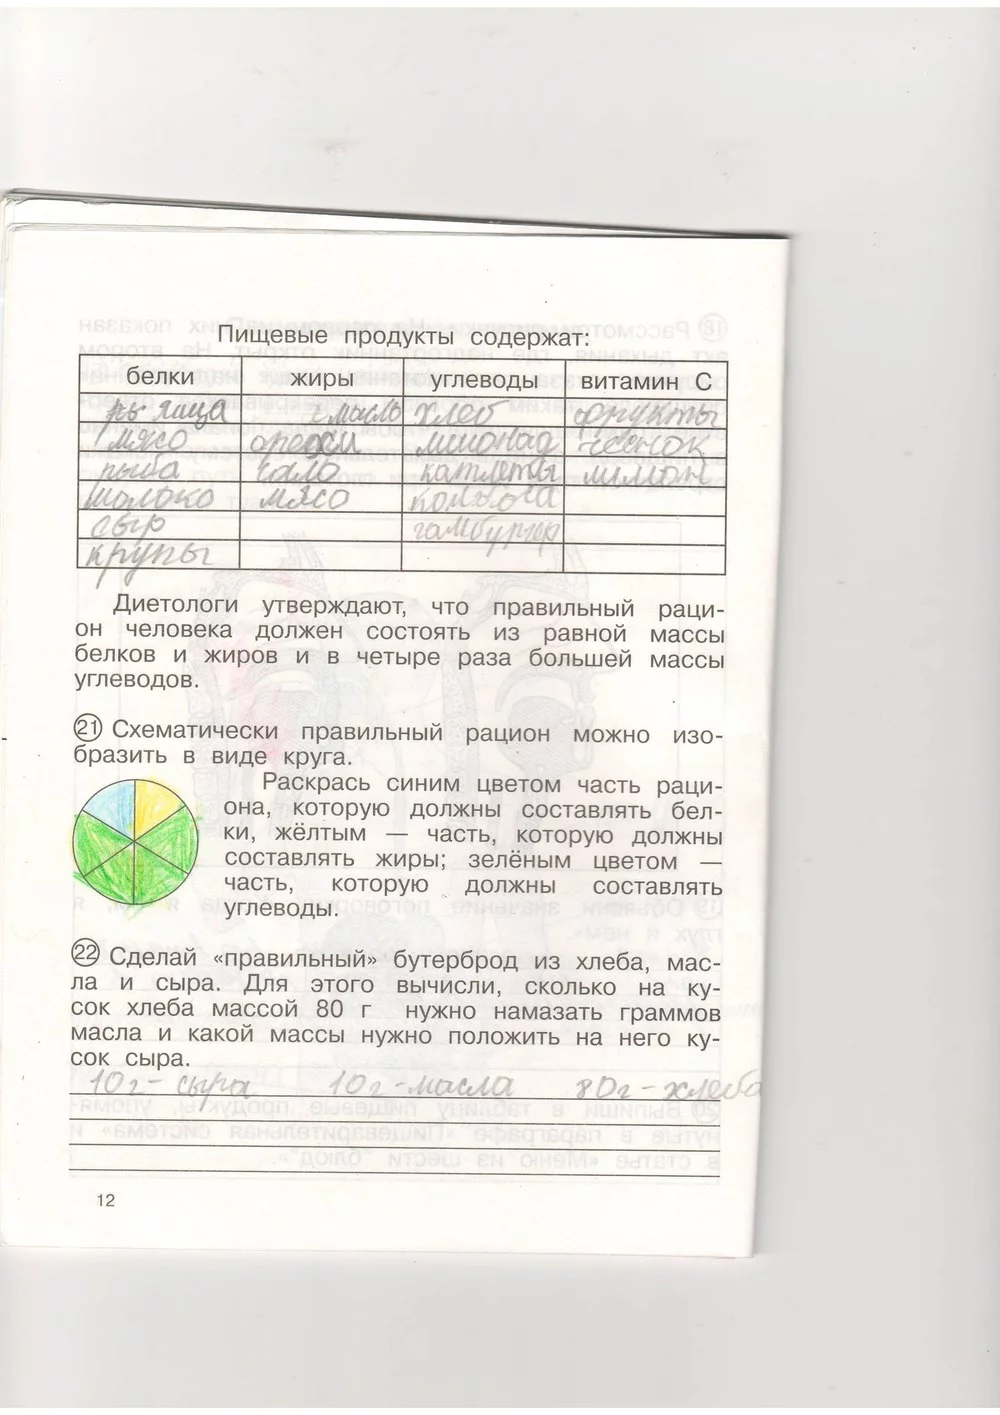 Пищевые продукты содержат:
белки жиры углеводы витамин С
яйца масло хлеб фрукты
мясо орехи лимонад чеснок
рыба сало котлеты лимон
молоко мясо
сыр гамбургер
крупы
Диетологи утверждают, что правильный раци-
он человека должен состоять из равной массы
белков и жиров и в четыре раза большей массы
углеводов.
21 Схематически правильный рацион можно изо-
бразить в виде круга.
Раскрась синим цветом часть раци-
она, которую должны составлять бел-
ки, жёлтым — часть, которую должны
составлять жиры; зелёным цветом —
часть, которую должны составлять
углеводы.
22 Сделай «правильный» бутерброд из хлеба, мас-
ла и сыра. Для этого вычисли, сколько на ку-
сок хлеба массой 80 г нужно намазать граммов
масла и какой массы нужно положить на него ку-
сок сыра.
10г - сыра 10г - масла 80г - хлеба
12